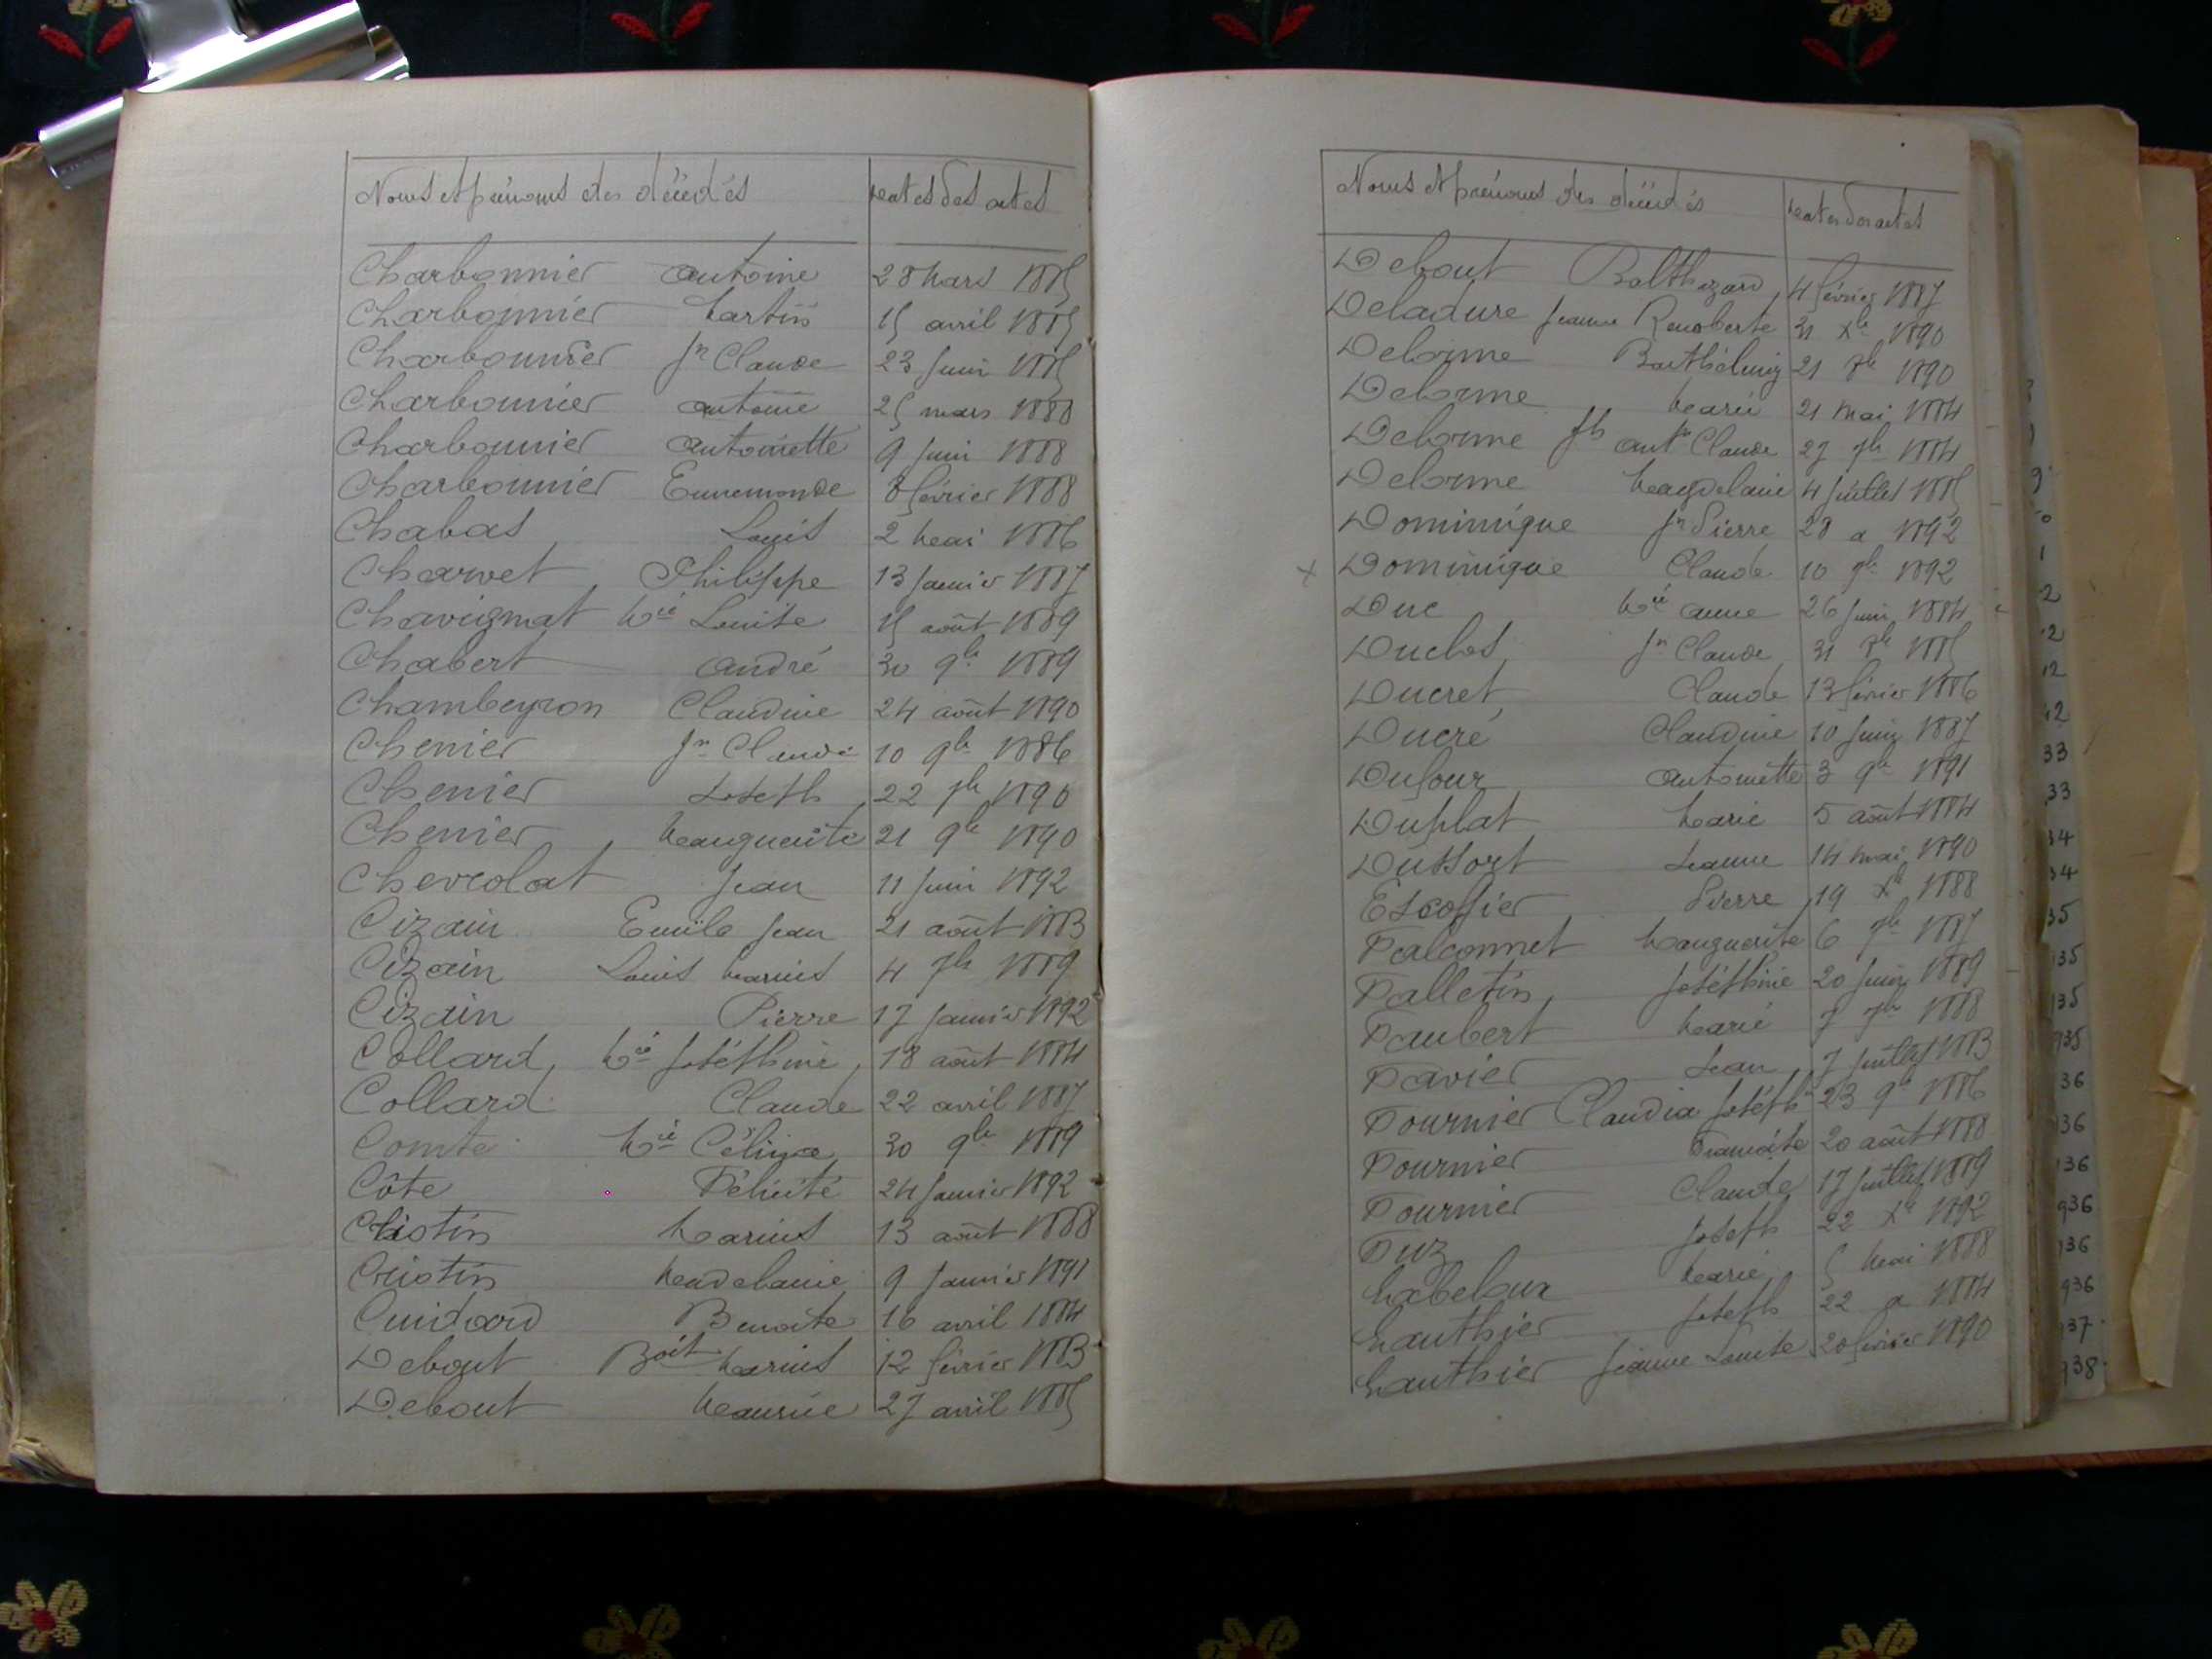 Noms et prénoms des décédés Dates des actes
Charbonnier Antoine 28 Mars 1885
Charbonnier Martin 15 avril 1885
Charbonnier Jn Claude 23 Juin 1885
Charbonnier Antoine 25 mars 1888
Charbonnier Antoinette 9 Juin 1888
Charbonnier Ennemonde 8 février 1888
Chabas Louis 2 Mai 1886
Charvet Philippe 13 Janvier 1887
Chavignat Mie Louise 15 août 1889
Chabert André 30 9bre 1889
Chambeyron Claudine 24 août 1890
Chenier Jn Claude 10 9bre 1886
Chenier Joseph 22 7bre 1890
Chenier Marguerite 21 9bre 1890
Chevrolat Jean 11 Juin 1892
Cizain Emile Jean 21 août 1883
Cizain Louis Marius 4 7bre 1889
Cizain Pierre 17 Janvier 1892
Collard Mie Joséphine 18 août 1884
Collard Claude 22 avril 1887
Comte Mie Célina 30 9bre 1889
Côte Félicité 24 Janvier 1892
Cristin Marius 13 août 1888
Cristin Madelaine 9 Janvier 1891
Cuidard Benoite 16 avril 1884
Debout Boit Marius 12 février 1883
Debout Maurice 27 avril 1885
Noms et prénoms des décédés Dates des actes
Debout Balthazard 4 février 1887
Deladure Jeanne Renoberte 31 Xbre 1890
Delorme Barthélemy 21 7bre 1890
Delorme Marie 21 mai 1884
Delorme Jh Ant Claude 27 7bre 1884
Delorme Magdelaine 4 Juillet 1885
Dominique Jn Pierre 28 a 1892
x Dominique Claude 10 9bre 1892
Duc Mie Anne 26 Juin 1884
Duclos Jn Claude 31 8bre 1885
Ducret Claude 13 février 1886
Ducré Claudine 10 Juin 1887
Dufour Antoinette 3 9bre 1891
Duplat Marie 5 août 1884
Dussort Jeanne 14 mai 1890
Escoffier Pierre 19 Xbre 1888
Falconnet Marguerite 6 7bre 1887
Falletin Joséphine 20 Juin 1889
Faubert Marie 7 7bre 1888
Favier Jean 7 Juillet 1883
Fournier Claudia Joséph 23 9bre 1886
Fournier Françoise 20 août 1888
Fournier Claude 17 Juillet 1889
Fuz Joseph 22 Xbre 1892
Gabeloux Marie 5 Mai 1888
Gauthier Joseph 22 a 1884
Gauthier Jeanne Louise 20 février 1890
33
33
34
34
35
35
35
935
36
936
136
936
936
936
937
938